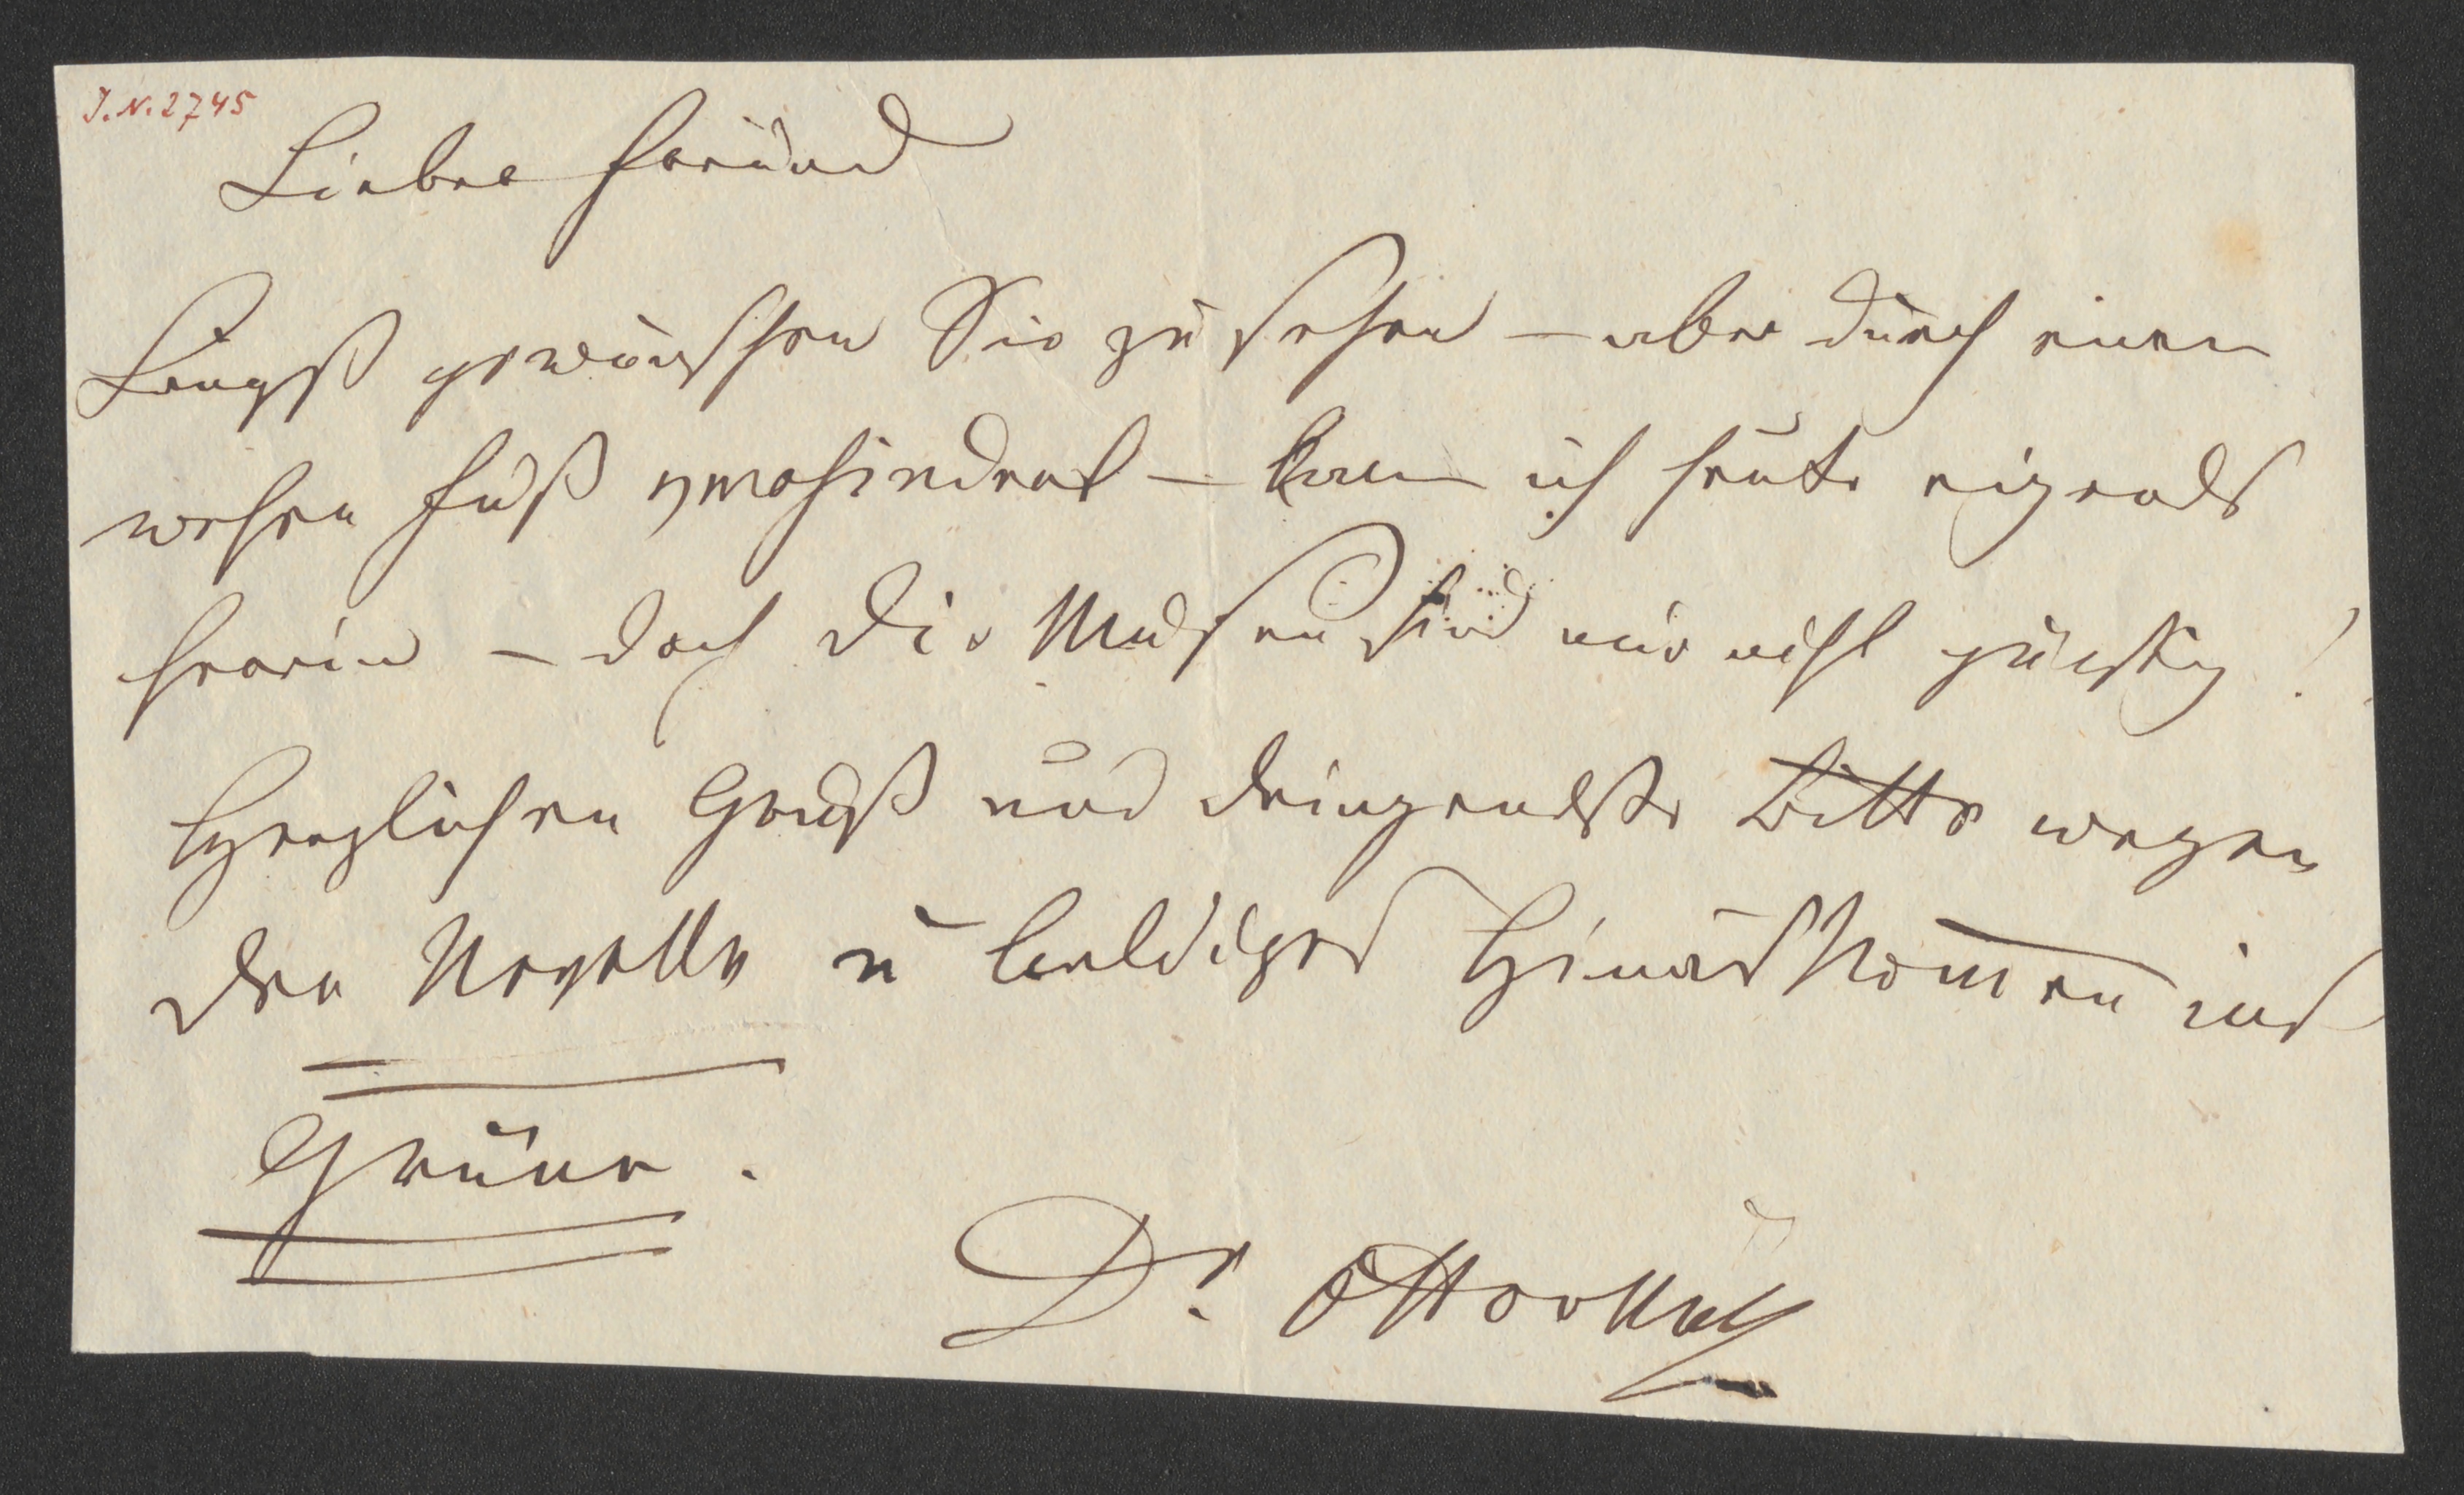 J.N. 2745
Lieber Freund
Längst gewünschen Sie zu sehen – aber durch einen
wehen Fuß verhindert – kam ich heute eigends
herein – doch die Musen sind mir nicht günstig!
Herzlichen Gruß und dringendste Bitte wegen
der Novelle u baldiges Hinauskommen ins
Grüne.
Dr.